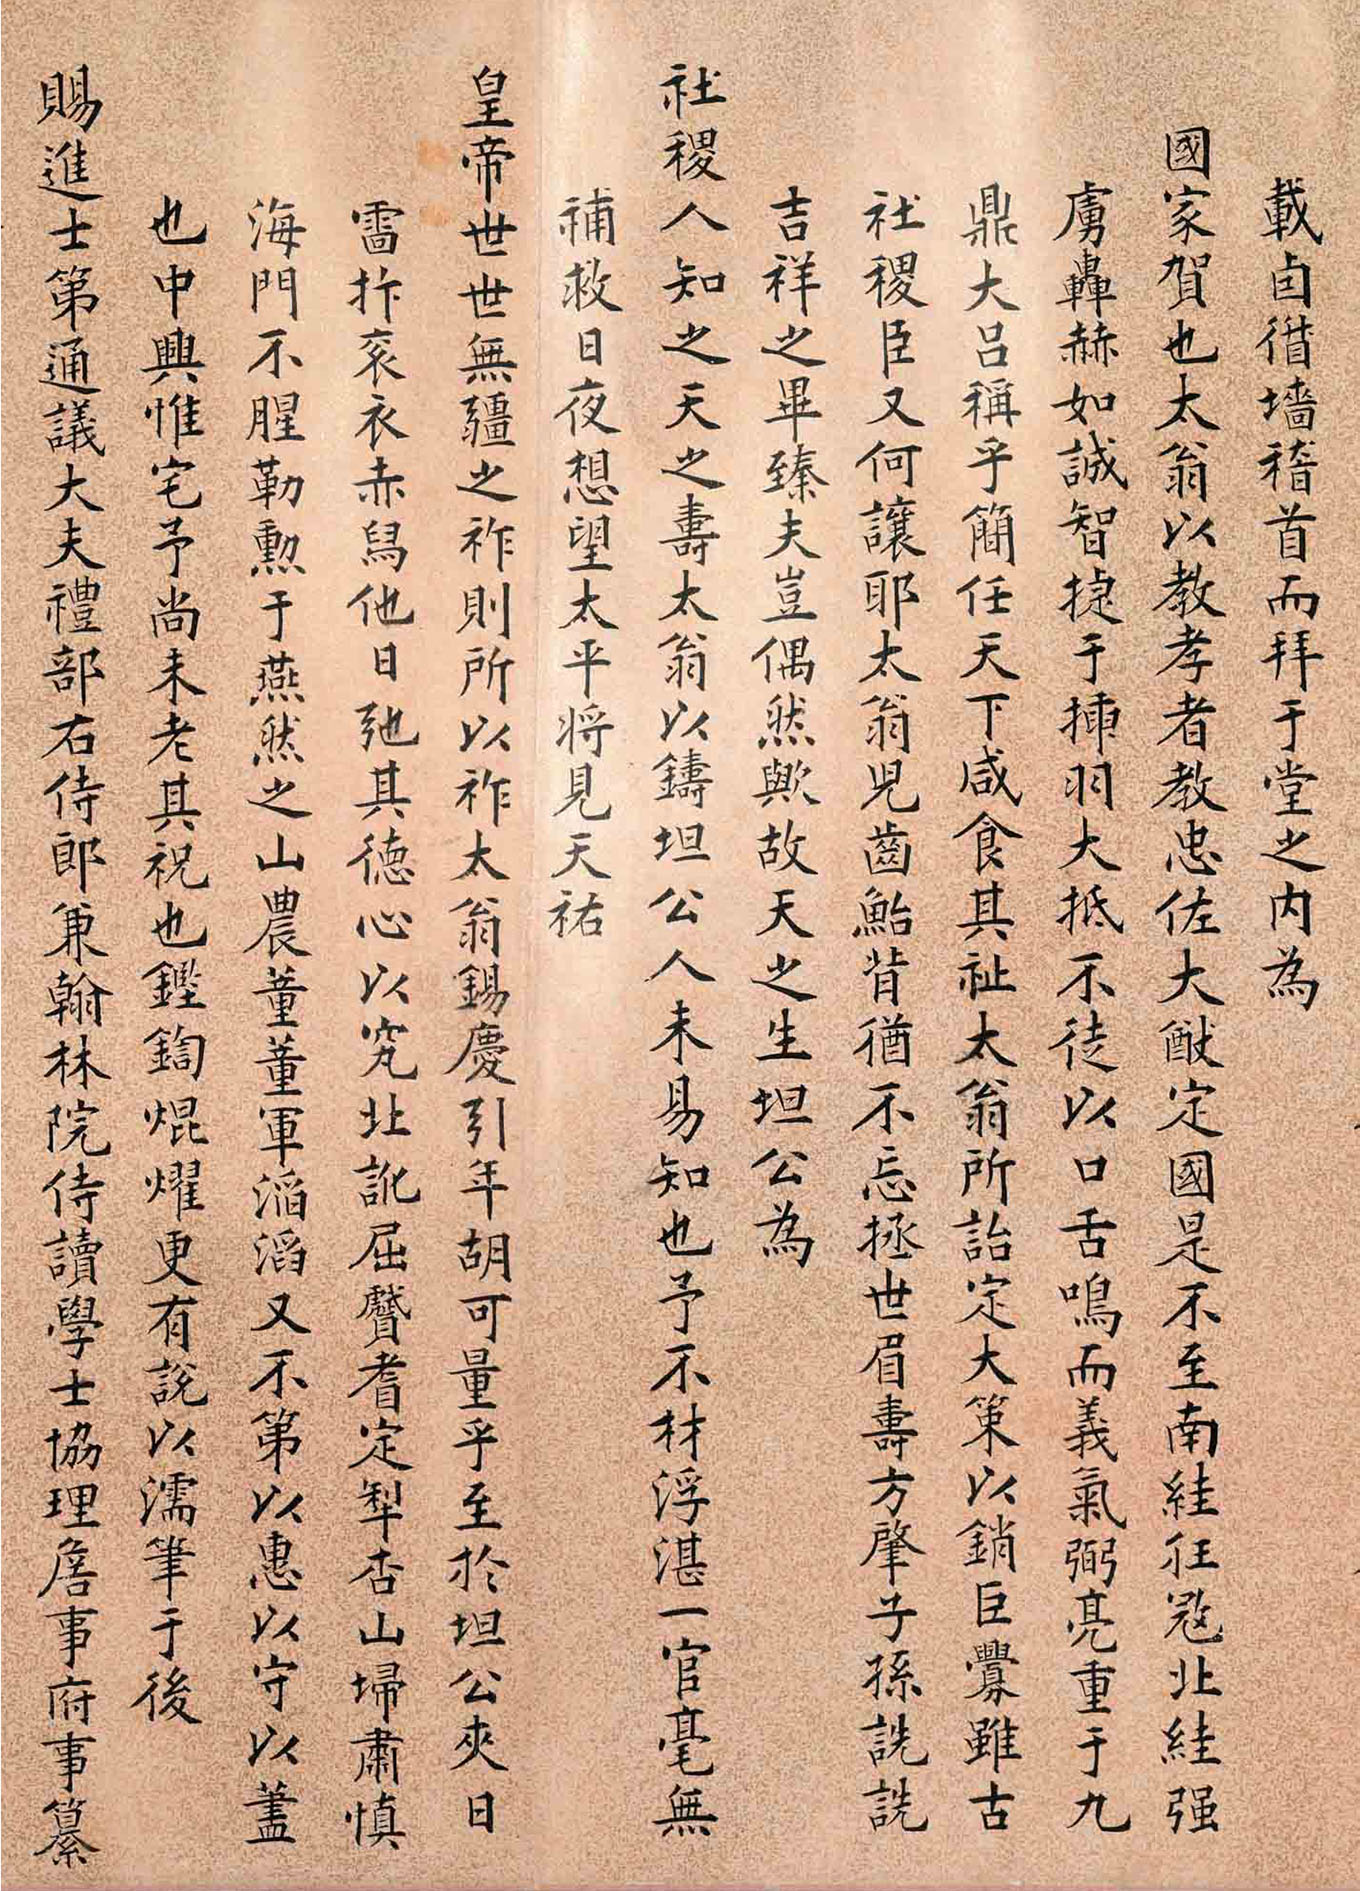 載卣偕墻稽首而拜于堂之内為
國家賀也太翁以教孝者教忠佐大猷定國是不至南絓狂寇北絓强
虜轟赫如誠智捷于揷羽大抵不徒以口舌鳴而義氣弼亮重于九
鼎大呂稱乎簡任天下咸食其祉太翁所詒定大策以銷巨釁雖古
社稷臣又何讓耶太翁兒齒鮐背猶不忘拯世眉壽方肇子孫詵詵
吉祥之畢臻夫豈偶然歟故天之生坦公為
社稷人知之天之壽太翁以鑄坦公人未易知也予不材浮湛一官毫無
補救日夜想望太平将見天祐
皇帝世世無疆之祚則所以祚太翁錫慶引年胡可量乎至於坦公夾日
雷抃衮衣赤舄他日弛其德心以究北訛屈贅耆定犁杏山埽肅慎
海門不腥勒勲于燕然之山農董董軍滔滔又不第以惠以守以藎
也中興惟宅予尚未老其祝也鏗鍧焜燿更有説以濡筆于後
賜進士第通議大夫禮部右侍郎兼翰林院侍讀學士協理詹事府事纂